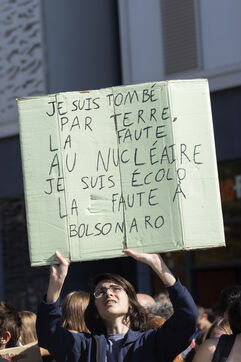 JE SUIS TOMBÉ
PAR TERRE,
LA FAUTE
AU NUCLÉAIRE
JE SUIS ÉCOLO
LA FAUTE À
BOLSONARO